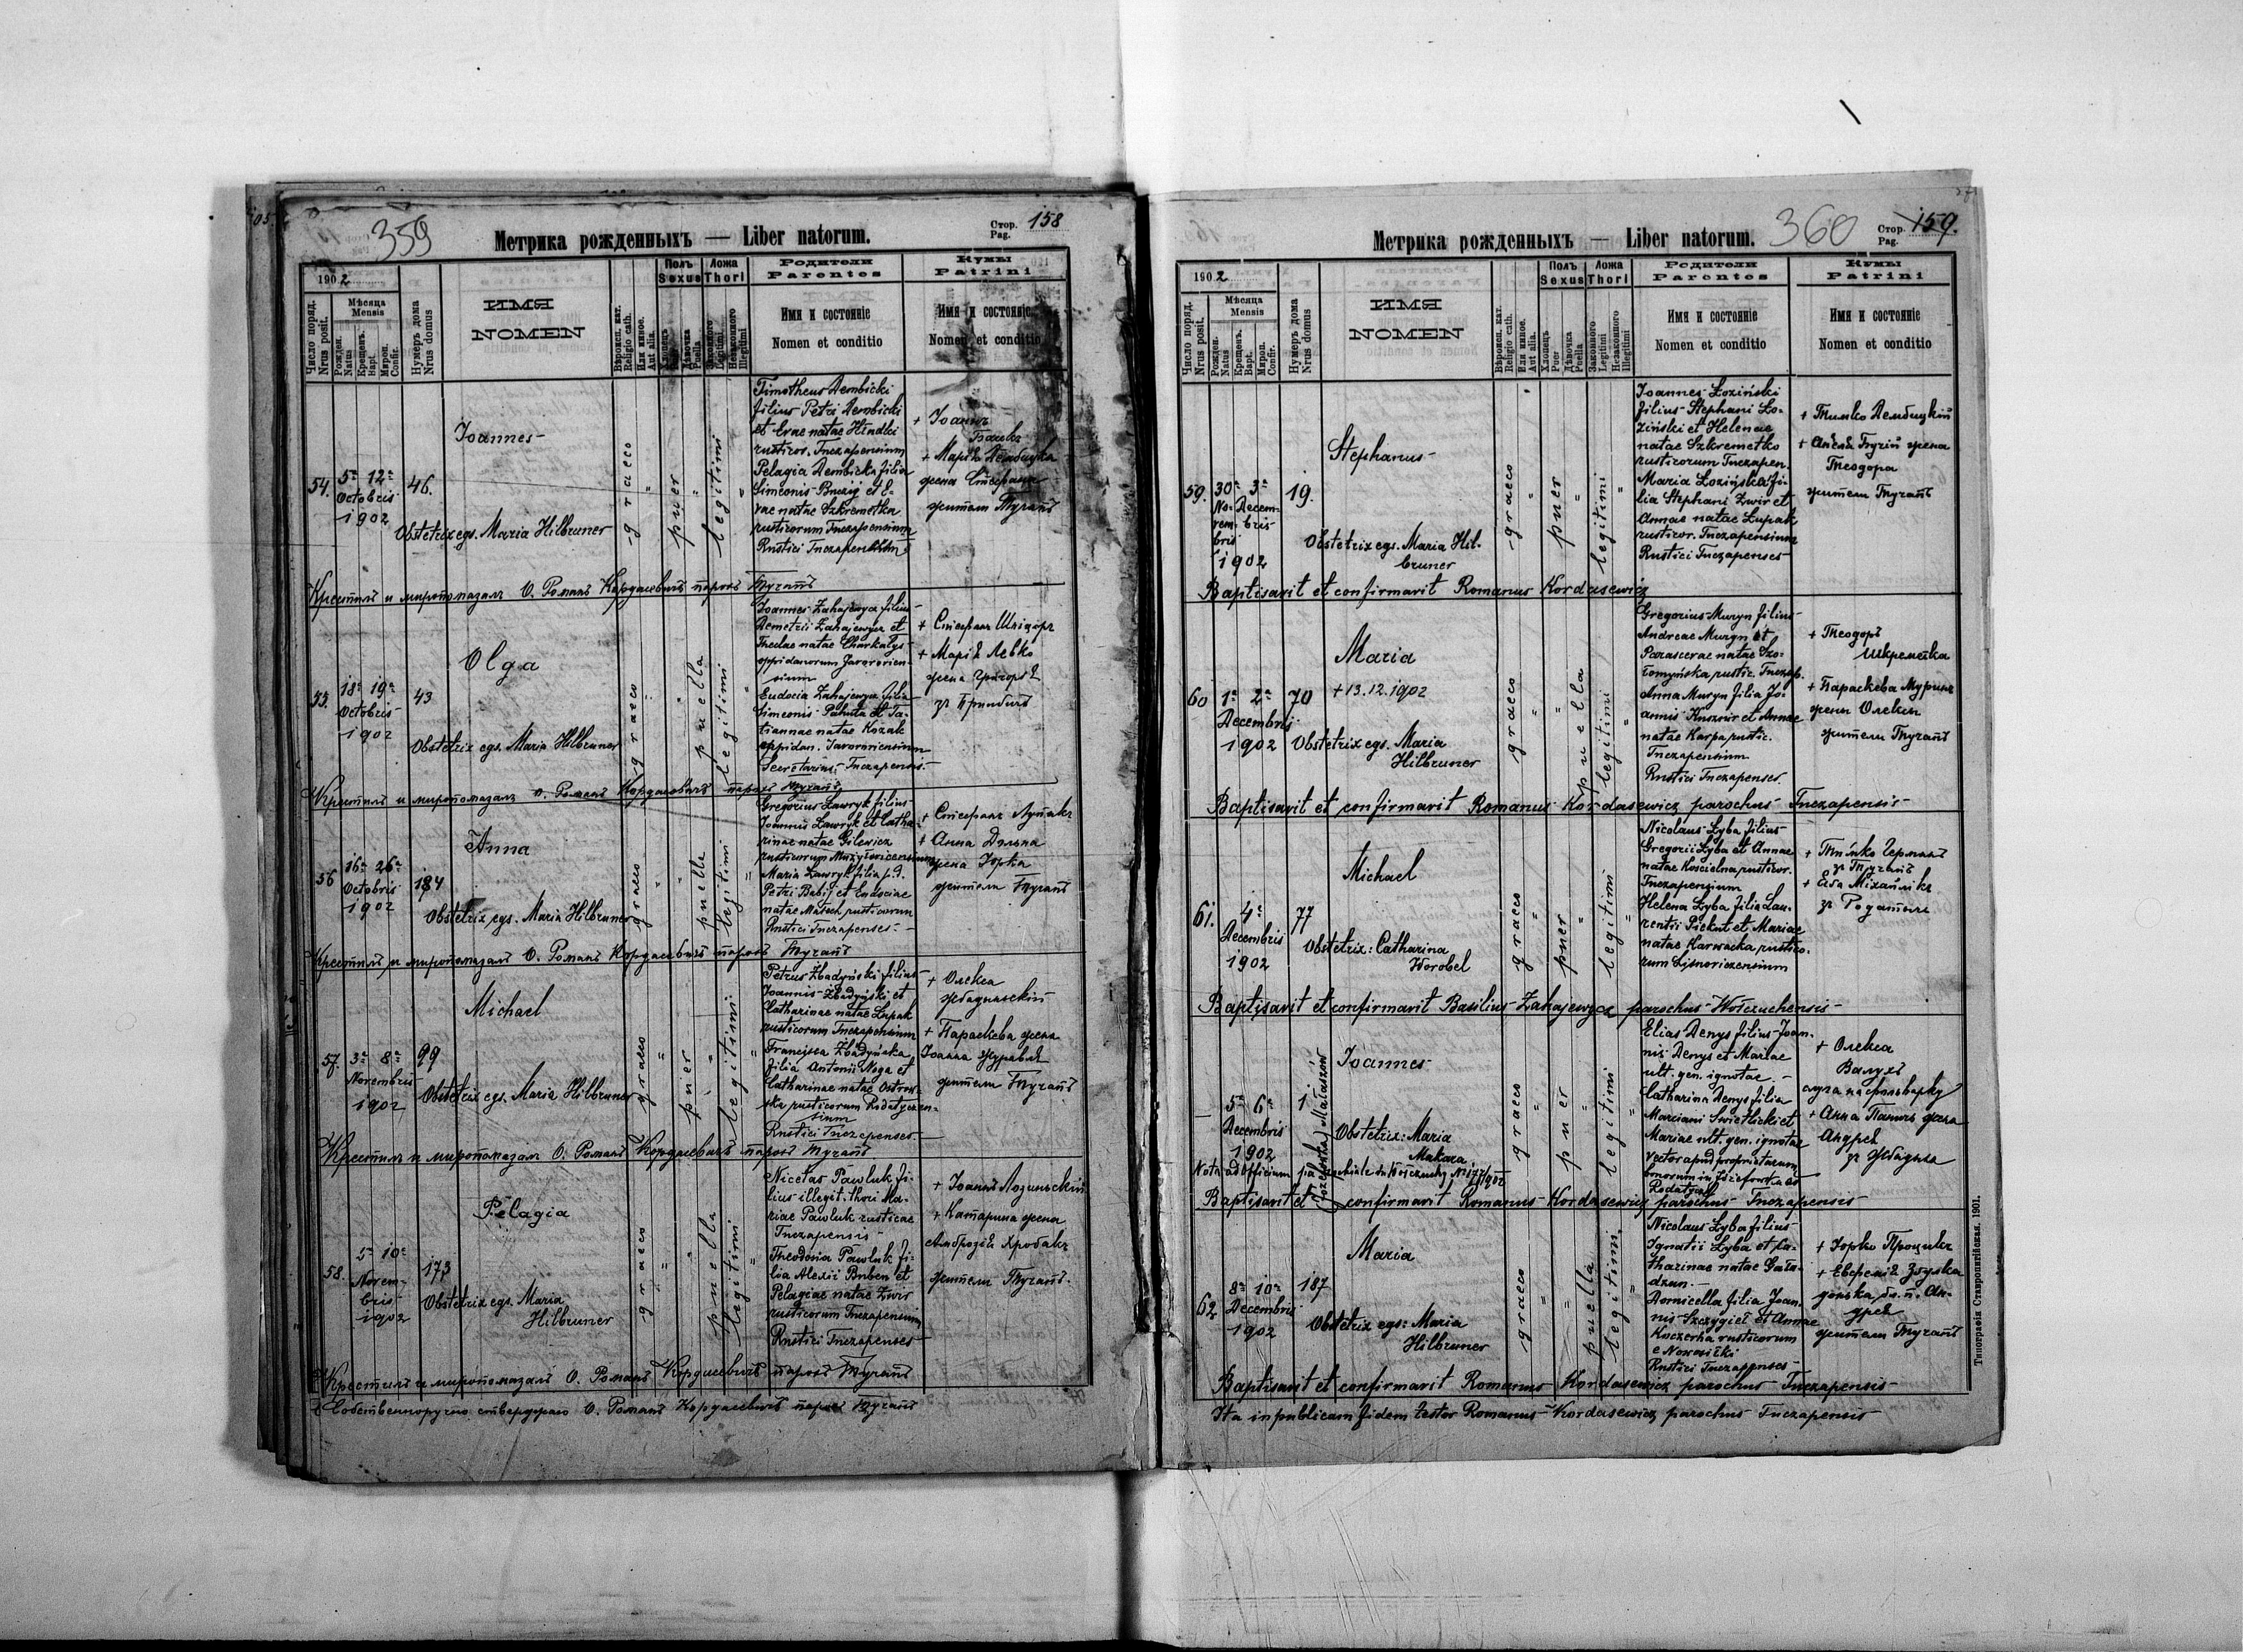 359
Метрика рожденныхъ — Liber natorum.
Стор. Pag. 158
1902
Число поряд. Nrus posit.
Мѣсяца Mensis
Рожден. Natus
Крещенъ. Bapt.
Миров. Confir.
Нумеръ дома Nrus domus
ИМЯ
NOMEN
Religio cath.
Или инное. Aut alia.
Полъ Sexus
Дѣвочка Puella
Ложа Thori
Законного Legitimi
Незаконного Illegitimi
Родители
Parentes
Имя и состояніе
Nomen et conditio
Кумы
Patrini
Имя и состояніе
Nomen et conditio
54.
5ª 12ª
Octobris
1902
46.
Joannes
Obstetrix egs. Maria Hilbruner
graeco
puer
legitimi
Timotheus Dembicki
filius Petri Dembicki
et Evae natae Hindki
rusticor. Tuczapensium
Pelagia Dembicka filia
Simeonis Buczij et E-
vae natae Szkremetka
rusticorum Tuczapensium
Rustici Tuczapenses
+ Іоаннъ
+ Марія Дембицка
жена Стефана
жители Тучапъ
Крестилъ и миропомазалъ О. Романъ Кордасевичъ парохъ Тучапъ
55.
18ª 19ª
Octobris
1902
43
Olga
Obstetrix egs. Maria Hilbruner
graeco
puella
legitimi
Joannes Zahajewycz filius
Demetrii Zahajewycz et
Theclae natae Charkalys
oppidanorum Javorovien-
sium
Eudocia Zahajewycz filia
Simeonis Pahuta et Ta-
tiannae natae Kozak
oppidan. Javoroviensium
Secretarius Tuczapensis
+ Стефанъ Шпідоръ
+ Марія Левко
жена Григорія
зъ
Крестилъ и миропомазалъ О. Романъ Кордасевичъ парохъ Тучапъ
56
16ª 26ª
Octobris
1902
184
Anna
Obstetrix egs. Maria Hilbruner
graeco
puella
legitimi
Gregorius Ławryk filius
Joannis Ławryk et Catha-
rinae natae Gilewicz
rusticorum Mużyłowicensium
Maria Ławryk filia p.d.
Petri Babij et Eudociae
natae Matsech rusticorum
Rustici Tuczapenses
+ Стефанъ Лупакъ
+ Анна Дѣльна
жена Юрка
жители Тучапъ
Крестилъ и миропомазалъ О. Романъ Кордасевичъ парохъ Тучапъ
57.
3ª 8ª
Novembris
1902
99
Michael
Obstetrix egs. Maria Hilbruner
graeco
puer
legitimi
Petrus Zbadyński filius
Joannis Zbadyński et
Catharinae natae Łupak
rusticorum Tuczapensium
Francisca Zbadyńska
filia Antonii Noga et
Catharinae natae Ostrow-
ska rusticorum Rodatyczen-
sium
Rustici Tuczapenses
+ Олекса
Жбадыньскій
+ Параскева жена
Іоанна Журавля
жители Тучапъ
Крестилъ и миропомазалъ О. Романъ Кордасевичъ парохъ Тучапъ
58.
5ª 10ª
Novem-
bris
1902
173
Pelagia
Obstetrix egs. Maria
Hilbruner
graeco
puella
legitimi
Nicetas Pawluk fi-
lius illegit. thori Ma-
riae Pawluk rusticae
Tuczapensis
Theodosia Pawluk fi-
lia Alexii Buben et
Pelagiae natae Zwir
rusticorum Tuczapensium
Rustici Tuczapenses
+ Іоаннъ Лозиньскій
+ Катарина жена
Амброзія Хробакъ
жители Тучапъ
Крестилъ и миропомазалъ О. Романъ Кордасевичъ парохъ Тучапъ
Собственноручно стверджаю О. Романъ Кордасевичъ парохъ Тучапъ
Метрика рожденныхъ — Liber natorum.
360
Стор. Pag. 159.
1902
Число поряд. Nrus posit.
Мѣсяца Mensis
Рожден. Natus
Крещенъ. Bapt.
Миров. Confir.
Нумеръ дома Nrus domus
ИМЯ
NOMEN
Religio cath.
Или инное. Aut alia.
Полъ Sexus
Хлопецъ Puer
Дѣвочка Puella
Ложа Thori
Законного Legitimi
Незаконного Illegitimi
Родители
Parentes
Имя и состояніе
Nomen et conditio
Кумы
Patrini
Имя и состояніе
Nomen et conditio
59.
30ª 3ª
No- Decem-
vem- bris
bris
1902
19.
Stephanus
Obstetrix egs. Maria Hil-
bruner
graeco
puer
legitimi
Joannes Łoziński
filius Stephani Ło-
ziński et Helenae
natae Szkremetko
rusticorum Tuczapen.
Maria Łozińska fi-
lia Stephani Zwir et
Annae natae Łupak
rusticor. Tuczapensium
Rustici Tuczapenses
+ Тимко Дембицкій
жена
Теодора
жители Тучапъ
Baptisavit et confirmavit Romanus Kordasewicz
60
1ª 2ª
Decembris
1902
70
Maria
+ 13.12.1902
Obstetrix egs. Maria
Hilbruner
graeco
puella
legitimi
Gregorius Muryn filius
Andreae Muryn et
Parascevae natae Szo-
łomyńska rustic. Tuczap.
Anna Muryn filia Jo-
annis Kusznir et Annae
natae Karpa rustic.
Tuczapensium
Rustici Tuczapenses
+ Теодоръ
Шкреметка
+ Параскева Муринъ
жена Олексы
жители Тучапъ
Baptisavit et confirmavit Romanus Kordasewicz parochus Tuczapensis
61.
4ª
Decembris
1902
77
Michael
Obstetrix: Catharina
Worobel
graeco
puer
legitimi
Nicolaus Łyba filius
Gregorii Łyba et Annae
natae Kościelna rusticor.
Tuczapensium
Helena Łyba filia Lau-
rentii Piekut et Mariae
natae Karwacka rustico-
rum
+ Тимко Германъ
зъ Тучапъ
+ Ева Михайлякъ
зъ Родатычъ
Baptisavit et confirmavit Basilius Zahajewycz parochus Wołczuchensis
5ª 6ª
Decembris
1902
1
(Józefówka) Małaszów
Joannes
Obstetrix: Maria
Makara
graeco
puer
legitimi
Elias Denys filius Joan-
nis Denys et Mariae
ult. gen. ignotae
Catharina Denys filia
Marciani Świetlicki et
Mariae ult. gen. ignotae
Vector apud proprietarium
bonorum in Józefówka ad
Rodatycze
+ Олекса
Валухъ
слуга на фольварку
+ Анна Паньчъ жена
Андрея
Nota ad Officium
Baptisavit et confirmavit Romanus Kordasewicz parochus Tuczapensis
62
8ª 10ª
Decembris
1902
187
Maria
Obstetrix egs: Maria
Hilbruner
graeco
puella
legitimi
Nicolaus Łyba filius
Ignatii Łyba et Ca-
tharinae natae Gała-
dzun
Dornicella filia Joan-
nis Szczygieł et Annae
Kuczerka rusticorum
e Nowosiłki
Rustici Tuczapenses
+ Юрко Процикъ
+ Евфемія
жители Тучапъ
Baptisavit et confirmavit Romanus Kordasewicz parochus Tuczapensis
Ita in publicam fidem testor Romanus Kordasewicz parochus Tuczapensis
Типографія Ставропигійская. 1901.